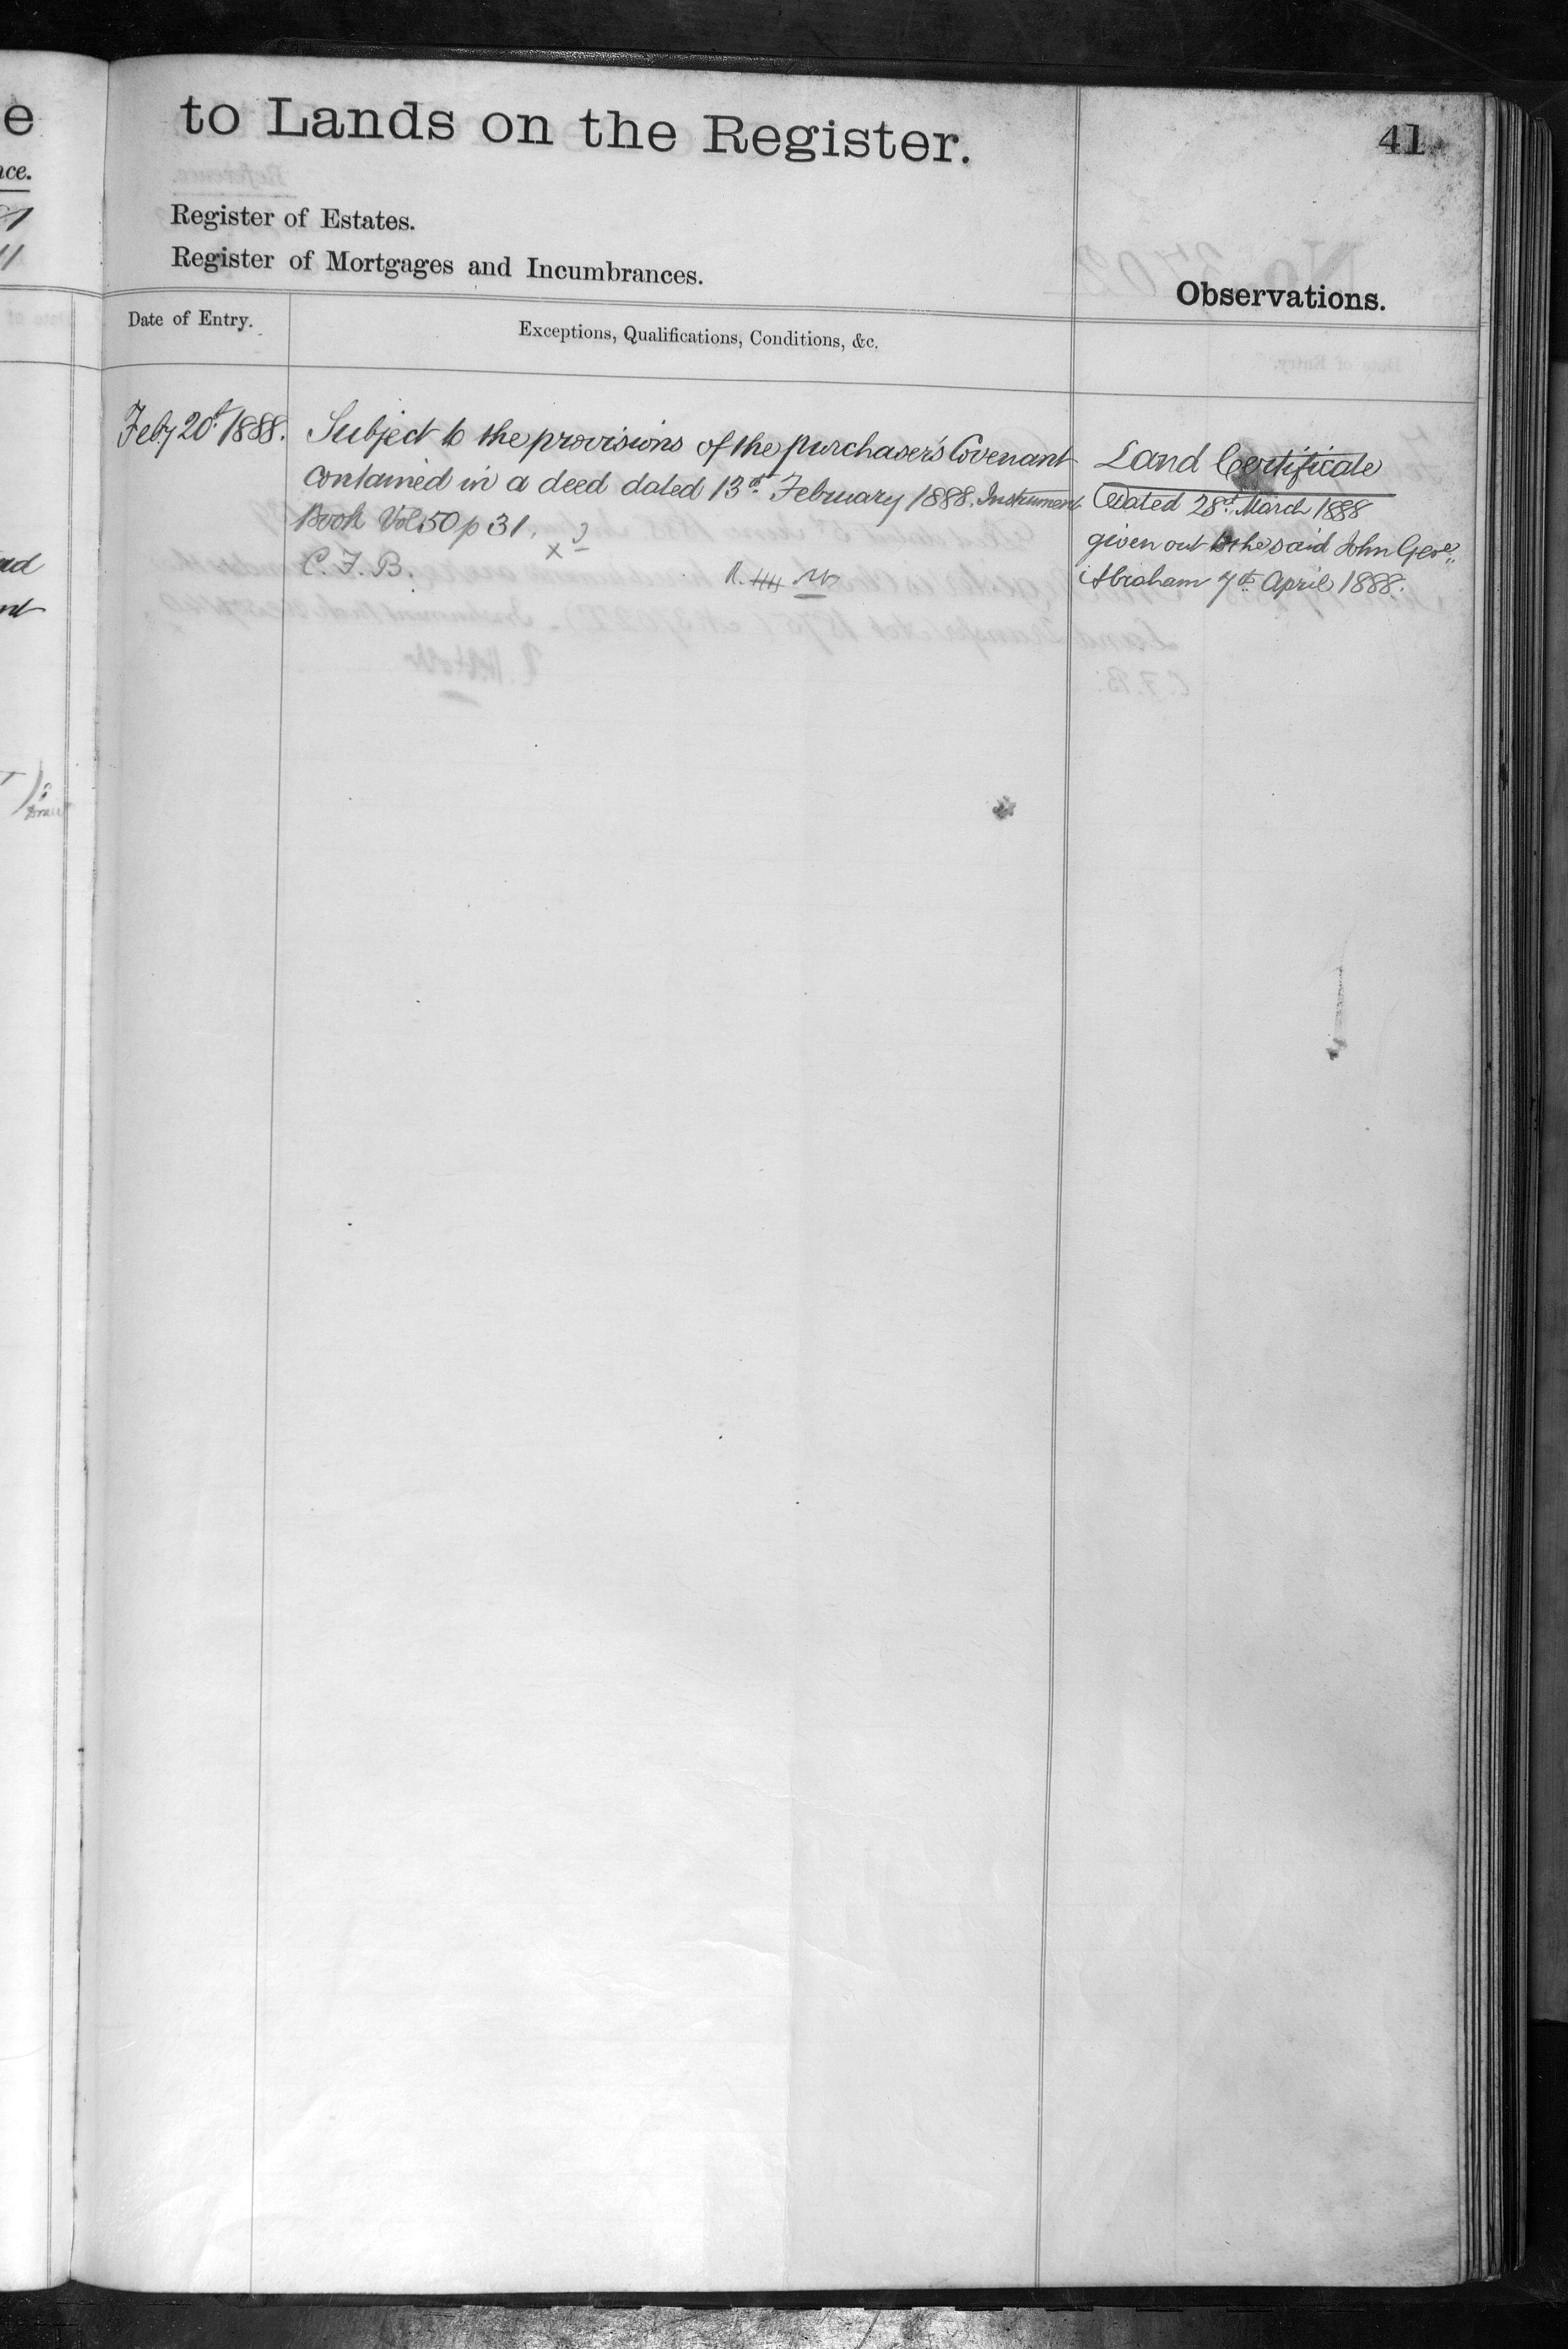 to Lands on the Register.
41
Register of Estates.
Register of Mortgages and Incumbrances.
Observations.
Date of Entry.
Exceptions, Qualifications, Conditions, &c.
Feby 20th 1888.
Subject to the provisions of the purchaser's Covenant
contained in a deed dated 13th February 1888. Instrument
Book Vol. 50 p 31.
C. F. B.
Land Certificate
Dated 28th March 1888
given out to the said John Geo.
Abraham 7th April 1888.
e
nce.